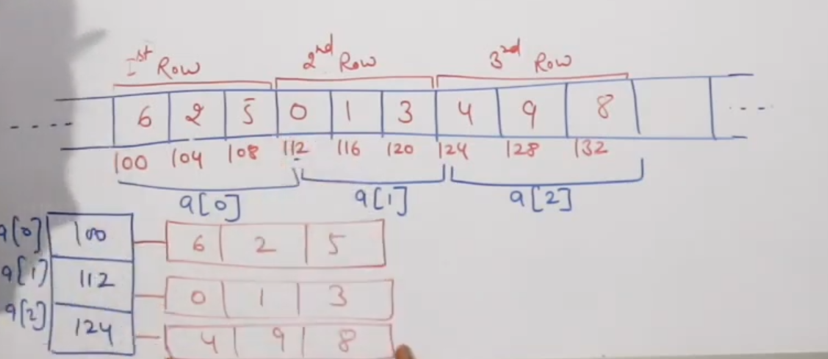 1st Row 2nd Row 3rd Row
.... 6 2 5 0 1 3 4 9 8 ...
100 104 108 112 116 120 124 128 132
a[0] a[1] a[2]
a[0] 100 6 2 5
a[1] 112 0 1 3
a[2] 124 4 9 8